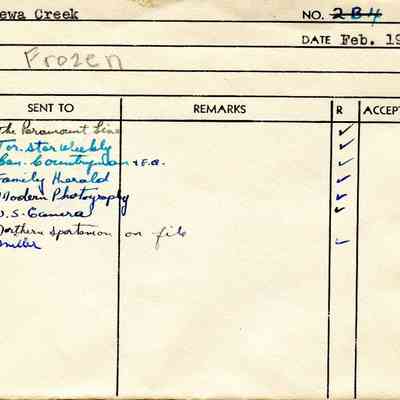 ewa Creek NO. 2B4
DATE Feb. 19
Frozen
SENT TO REMARKS R ACCEPT
The Paramount Line
Tor. Star Weekly
Can. Countryman & F.a.
Family Herald
Modern Photography
U.S. Camera
Northern Sportsman on file
Miller